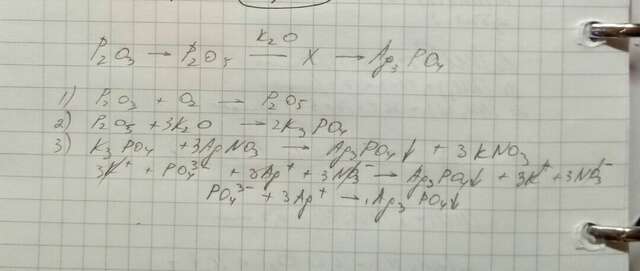 K₂O
P₂O₃ → P₂O₅ — X → Ag₃PO₄
1) P₂O₃ + O₂ → P₂O₅
2) P₂O₅ + 3K₂O → 2K₃PO₄
3) K₃PO₄ + 3AgNO₃ → Ag₃PO₄↓ + 3KNO₃
3K⁺ + PO₄³⁻ + 3Ag⁺ + 3NO₃⁻ → Ag₃PO₄↓ + 3K⁺ + 3NO₃⁻
PO₄³⁻ + 3Ag⁺ → Ag₃PO₄↓